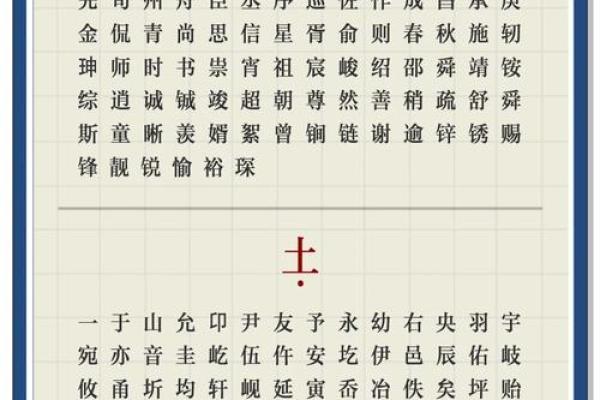 金 侃 青 尚 思 信 星 胥 俞 则 春 秋 施 轫
珅 师 时 书 祟 宵 祖 宸 峻 绍 邵 舜 靖 铵
综 逍 诚 铖 竣 超 朝 尊 然 善 稍 疏 舒 舜
斯 童 晰 羡 婿 絮 曾 锏 链 谢 逾 锌 锈 赐
锋 靓 锐 愉 裕 琛
土
一 于 山 允 卬 尹 友 予 永 幼 右 央 羽 宇
宛 亦 音 圭 屹 伍 仵 安 圪 伊 邑 辰 佑 岐
攸 甬 圻 均 轩 岘 延 寅 岙 冶 佚 矣 坪 贻